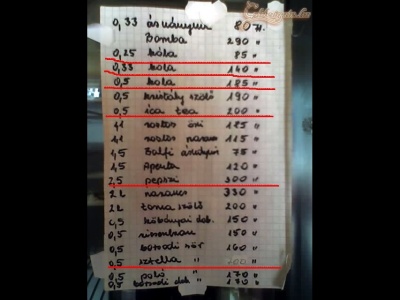 0,33 ásványvíz 80 Ft.
Bomba 290 "
0,25 kóla 85 "
0,33 kola 140 "
0,5 kola 185 "
0,5 kristály szőlő 190 "
0,5 ice tea 200 "
1l rostos őszi 185 "
1l rostos narancs 115 "
1,5 Balfi ásványvíz 75 "
1,5 Apenta 120 "
2,5 pepszi 300 "
2l narancs 330 "
2l Tonia szőlő 200 "
0,5 kőbányai dob. 150 "
0,5 150 "
0,5 borsodi sör 160 "
0,5 sztella " 200 "
0,5 polo " 170 "
0,5 borsodi dob " 170 "